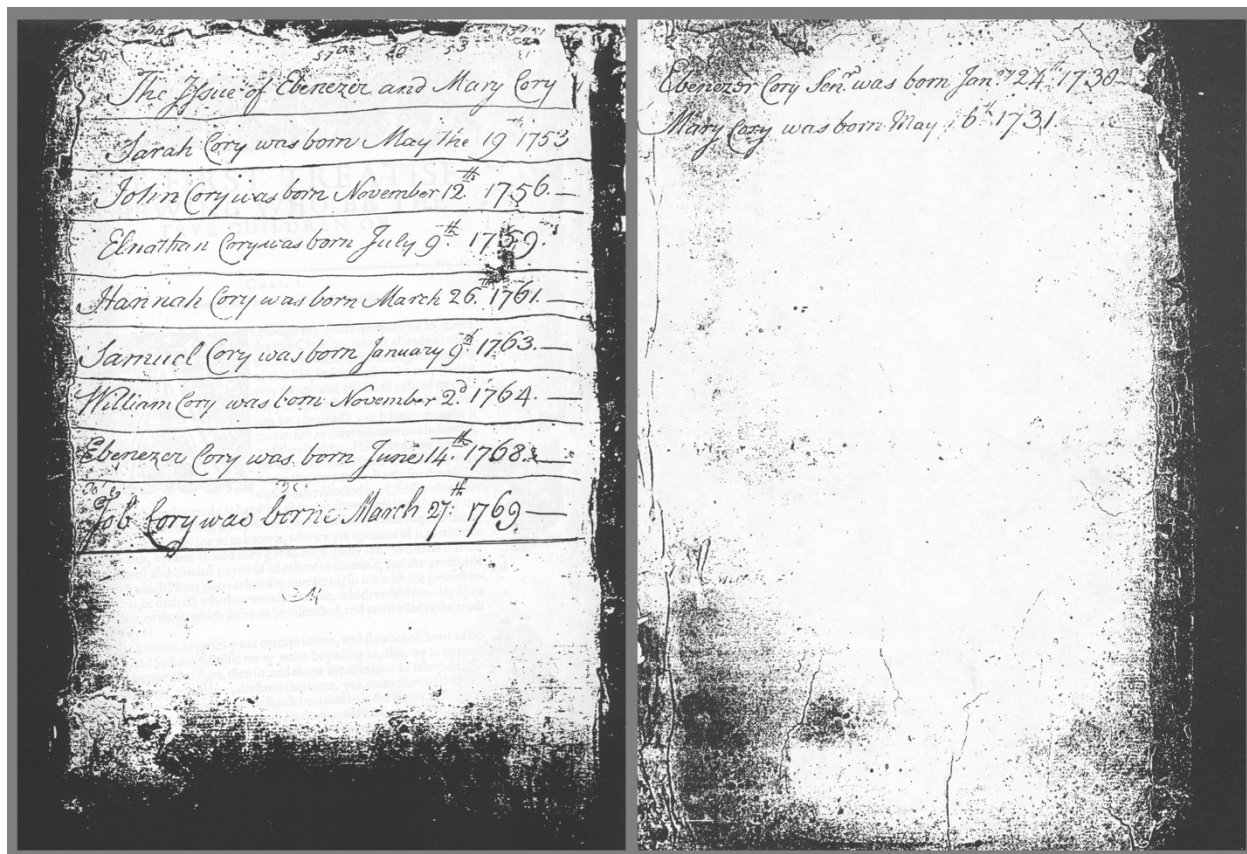 The Issue of Ebenezer and Mary Cory
Sarah Cory was born May the 19th 1753
John Cory was born November 12th. 1756.—
Elnathan Cory was born July 9th. 1759.
Hannah Cory was born March 26. 1761.—
Samuel Cory was born January 9th. 1763.—
William Cory was born November 2d. 1764.—
Ebenezer Cory was born June 14th. 1768.—
Job Cory was borne March 27th: 1769—
Ebenezer Cory Senr. was born Jany 24th 1730—
Mary Cory was born May 16th. 1731.